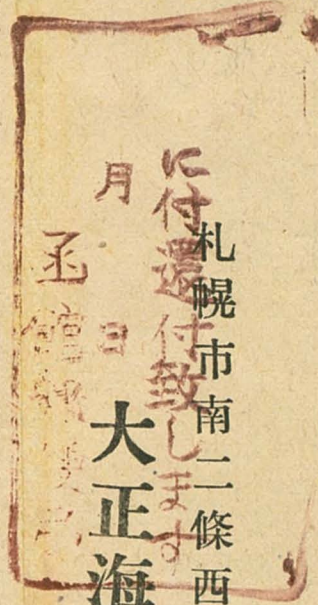 札幌市南二條西
大正海
に付還付致します
月 日
函館